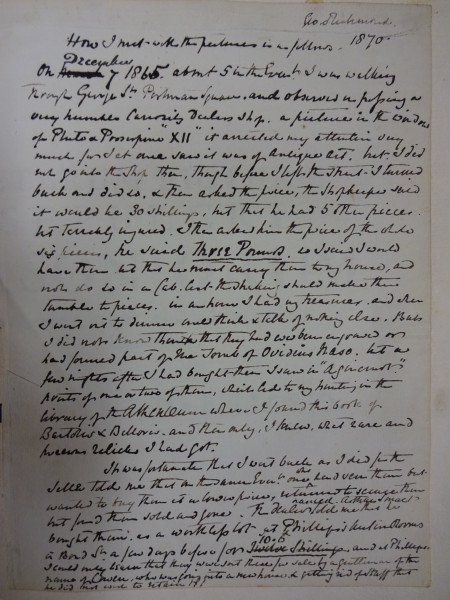 Geo. Richmond
1870.
How I met with the pictures is as follows.
December
On 7 1865 about 5 in the Evening I was walking
through George St. Portman Square, and observed in passing a
very humble Curiosity Dealers Shop. a picture in the window
of Pluto & Proserpine "XII" it arrested my attention very
much for I at once said it was of Antique Art. but I did
not go into the shop then, though before I left the Street I turned
back and did so, & then asked the price, the Shopkeeper said
it would be 30 shillings, but that he had 5 other pieces
but terribly injured. I then asked him the price of the
six pieces, he said Three Pounds. so I said I would
have them but that he must carry them to my house, and
not do so in a Cab lest the shaking should make them
tumble to pieces. in an hour I had my treasures. and when
I went out to dinner could think & talk of nothing else. But
I did not know that they had ever been engraved or
had formed part of the Tomb of Ovidius Naso. but a
few nights after I had bought them I saw in
prints of one or two of them, which led to my hunting in the
library of the Athenaeum where I found this book of
Bartoli & Bellori. and then only, I knew, what rare and
precious reliches I had got.
It was fortunate that I went back as I did for the
told me that on the
wanted to buy them at a lower price, returned to secure them
but found them sold and gone. The Dealer told me that he
bought them, in a worthless lot at Phillips's Auction Rooms
10.6
in Bond St. a few days before for Twelve Shillings and at Phillips's
I could only learn that they were sent there for sale by a gentleman of the
name of who was going into a new house & getting rid of stuff that
he did not care to retain.